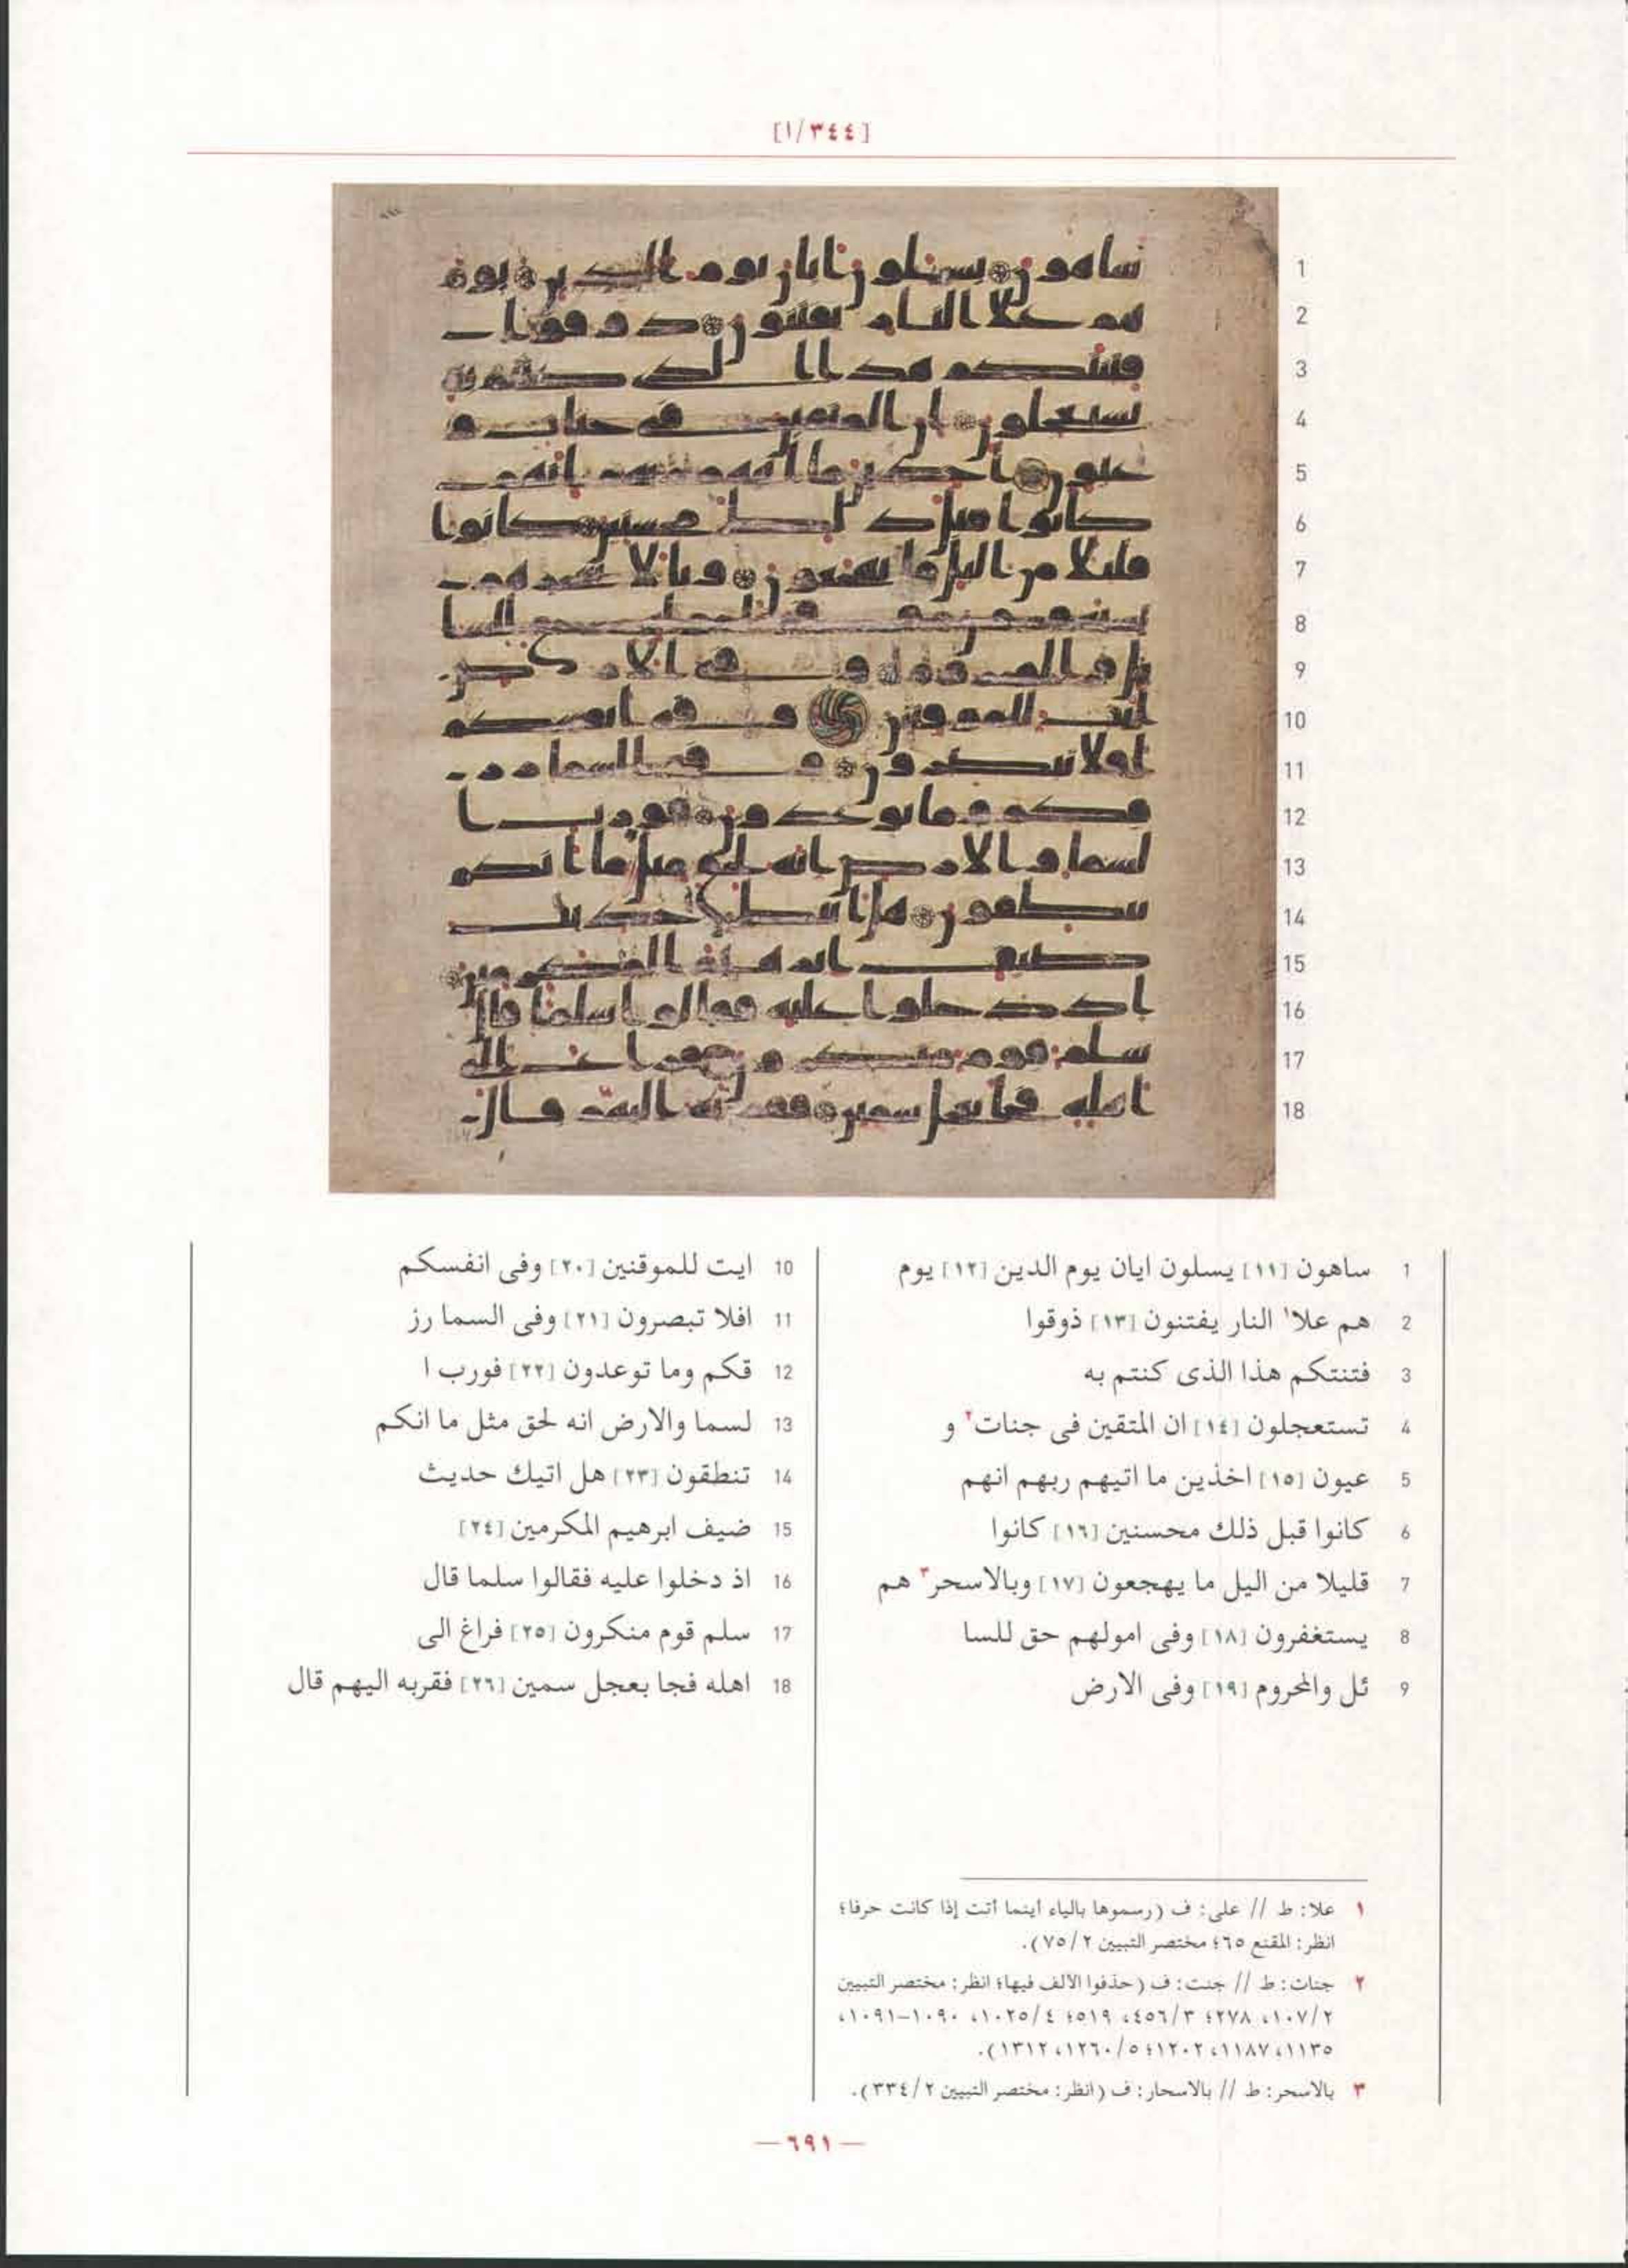 [١/٣٤٤]
1 ساهون [١١] يسلون ايان يوم الدين [١٢] يوم
2 هم علا١ النار يفتنون [١٣] ذوقوا
3 فتنتكم هذا الذى كنتم به
4 تستعجلون [١٤] ان المتقين فى جنات٢ و
5 عيون [١٥] اخذين ما اتيهم ربهم انهم
6 كانوا قبل ذلك محسنين [١٦] كانوا
7 قليلا من اليل ما يهجعون [١٧] وبالاسحر٣ هم
8 يستغفرون [١٨] وفى امولهم حق للسا
9 ئل والمحروم [١٩] وفى الارض
10 ايت للموقنين [٢٠] وفى انفسكم
11 افلا تبصرون [٢١] وفى السما رز
12 قكم وما توعدون [٢٢] فورب ا
13 لسما والارض انه لحق مثل ما انكم
14 تنطقون [٢٣] هل اتيك حديث
15 ضيف ابرهيم المكرمين [٢٤]
16 اذ دخلوا عليه فقالوا سلما قال
17 سلم قوم منكرون [٢٥] فراغ الى
18 اهله فجا بعجل سمين [٢٦] فقربه اليهم قال
١ علا: ط // على: ف (رسموها بالياء أينما أتت إذا كانت حرفا؛
انظر: المقنع ٦٥؛ مختصر التبيين ٧٥/٢).
٢ جنات: ط // جنت: ف (حذفوا الالف فيها؛ انظر: مختصر التبيين
١٠٧/٢، ٢٧٨؛ ٤٥٦/٣، ٥١٩؛ ١٠٢٥/٤، ١٠٩٠–١٠٩١،
١١٣٥، ١١٨٧، ١٢٠٢؛ ١٢٦٠/٥، ١٣١٢).
٣ بالاسحر: ط // بالاسحار: ف (انظر: مختصر التبيين ٣٣٤/٢).
— ٦٩١ —